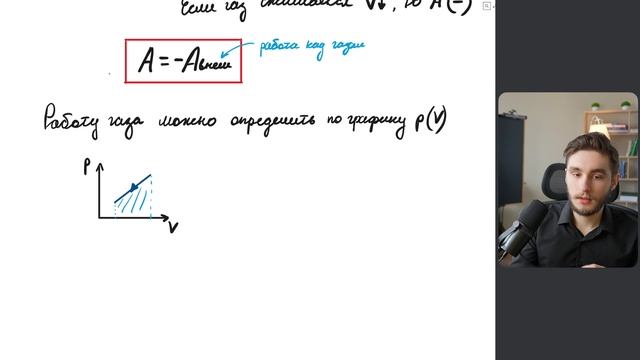 Если газ сжимается V↓, то A (-)
A = -Aвнеш
работа над газом
Работу газа можно определить по графику p(V)
P
V